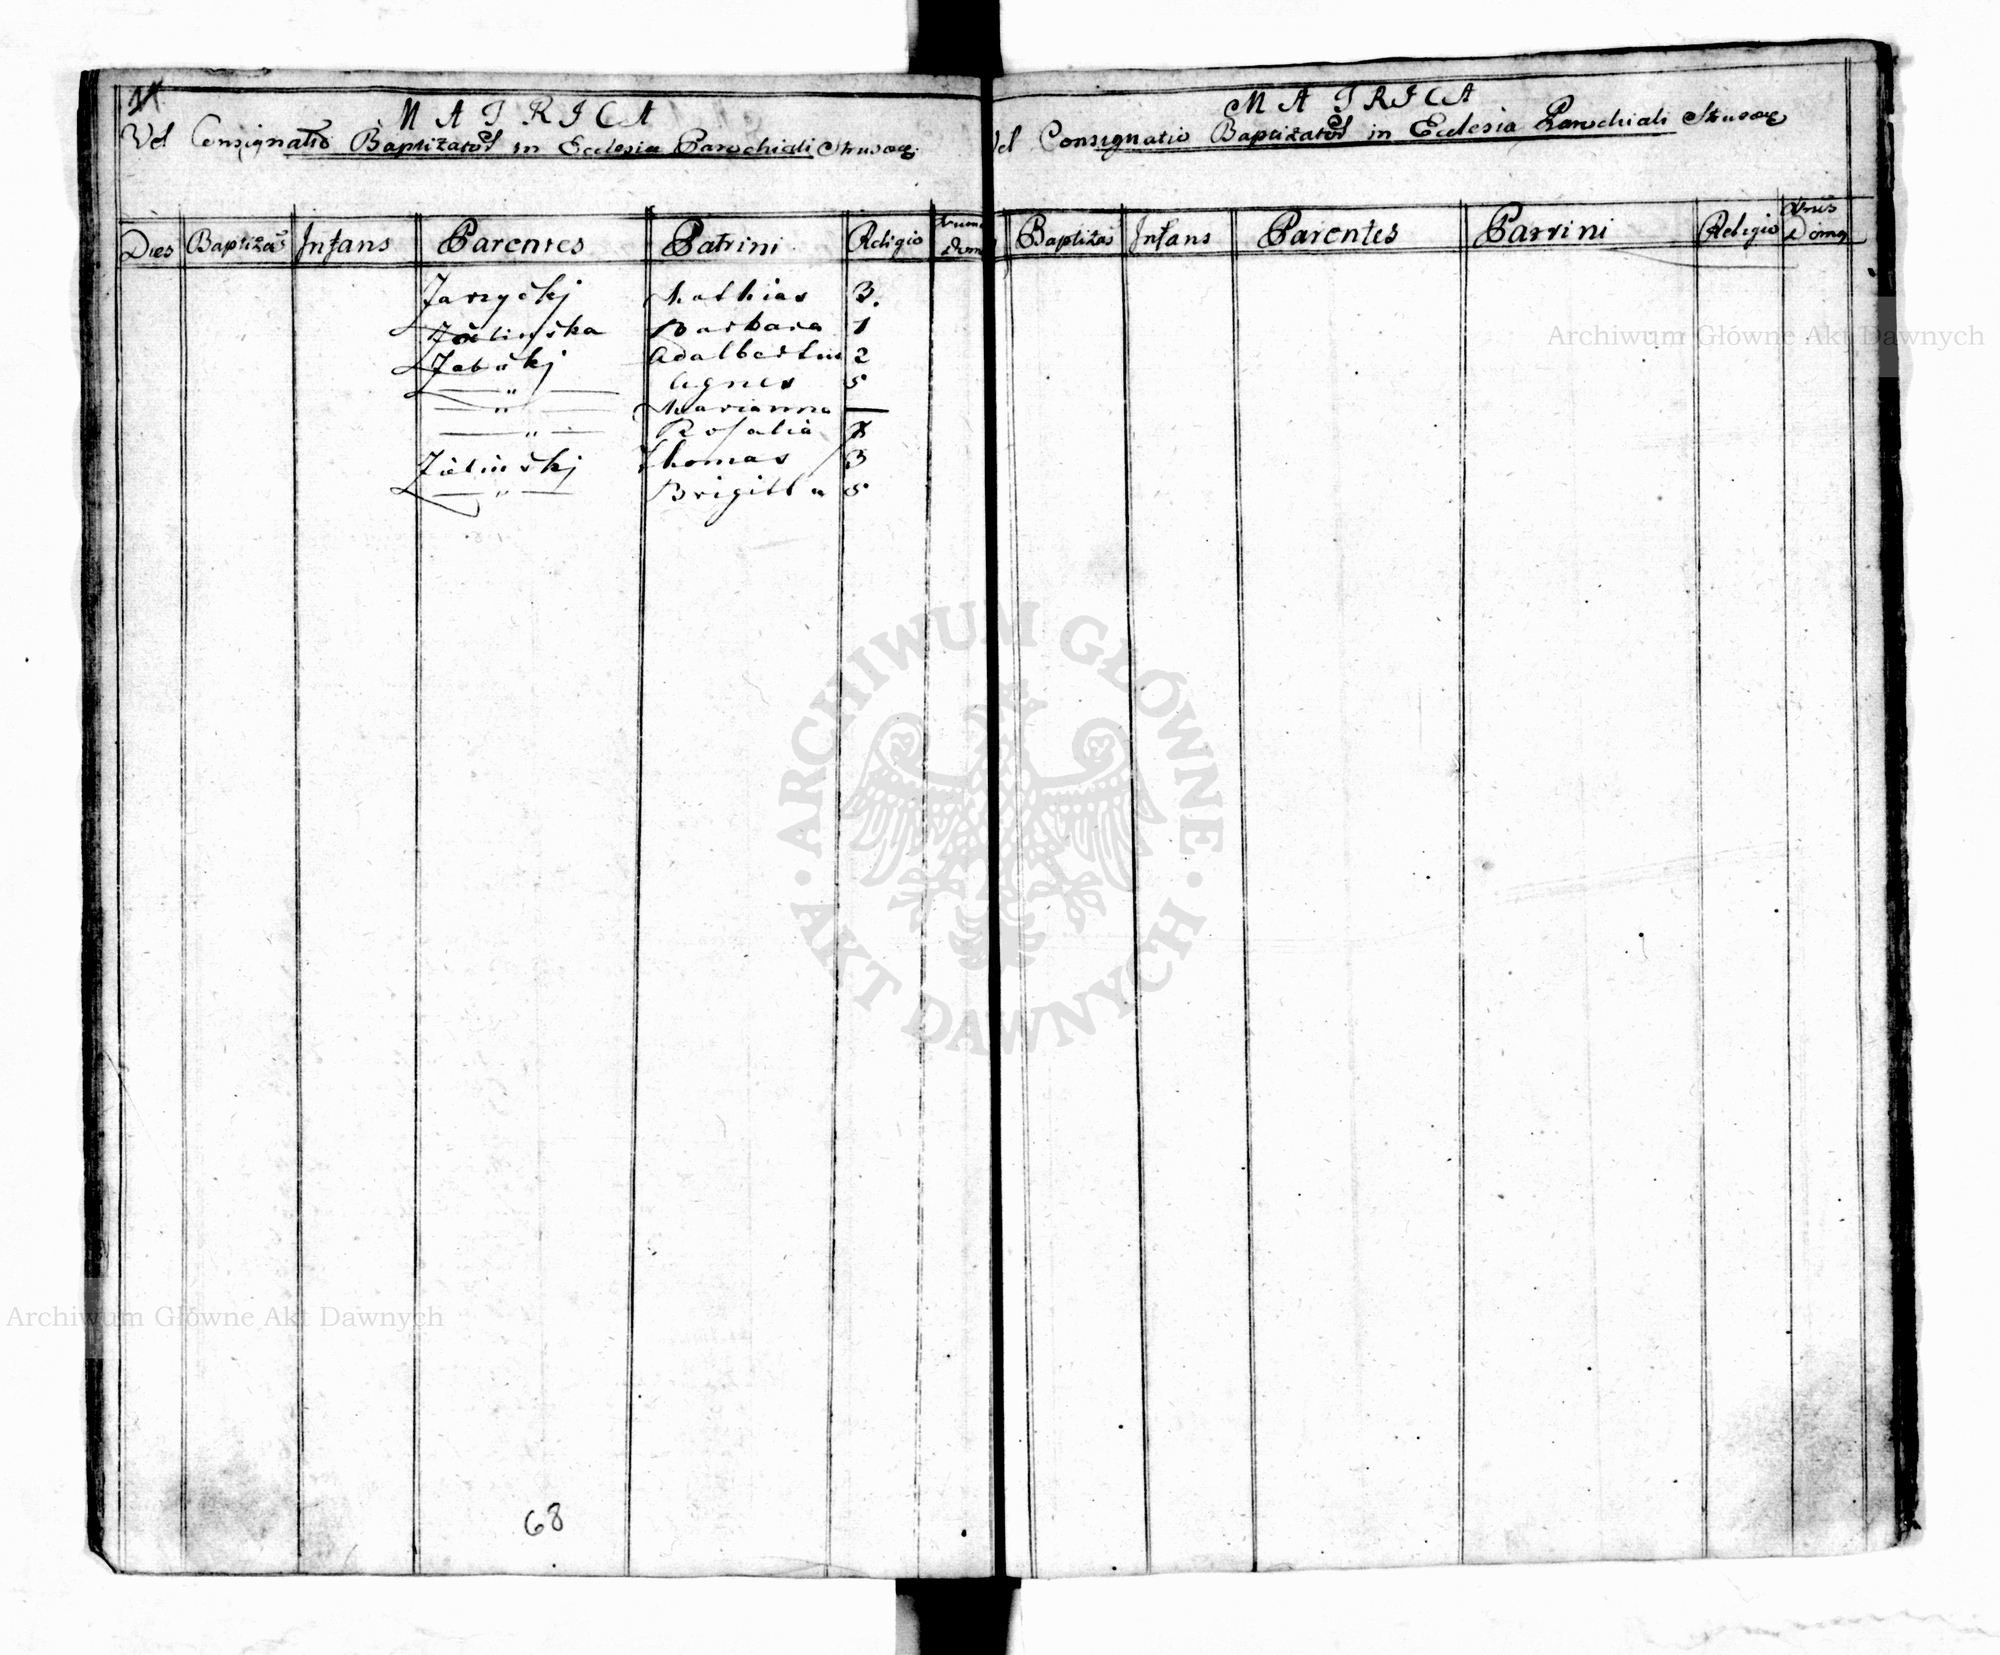 MATRICA
Vel Consignatio Baptizatos in Ecclesia Parochiali Strusoviae
Dies Baptizas Infans Parentes Patrini Religio Num Dom
Jarzyckj Mathias 3.
Zielinska Barbara 1
Zabskj Adalbertus 2
— " — Agnes 5
— " — Marianna —
— " — Rosalia
Zielinskj Thomas 3
— " — Brigitta 5
68
MATRICA
Vel Consignatio Baptizatos in Ecclesia Parochiali
Baptizas Infans Parentes Patrini Religio Nrus Domq
Archiwum Główne Akt Dawnych
ARCHIWUM GŁÓWNE
AKT DAWNYCH
Archiwum Główne Akt Dawnych